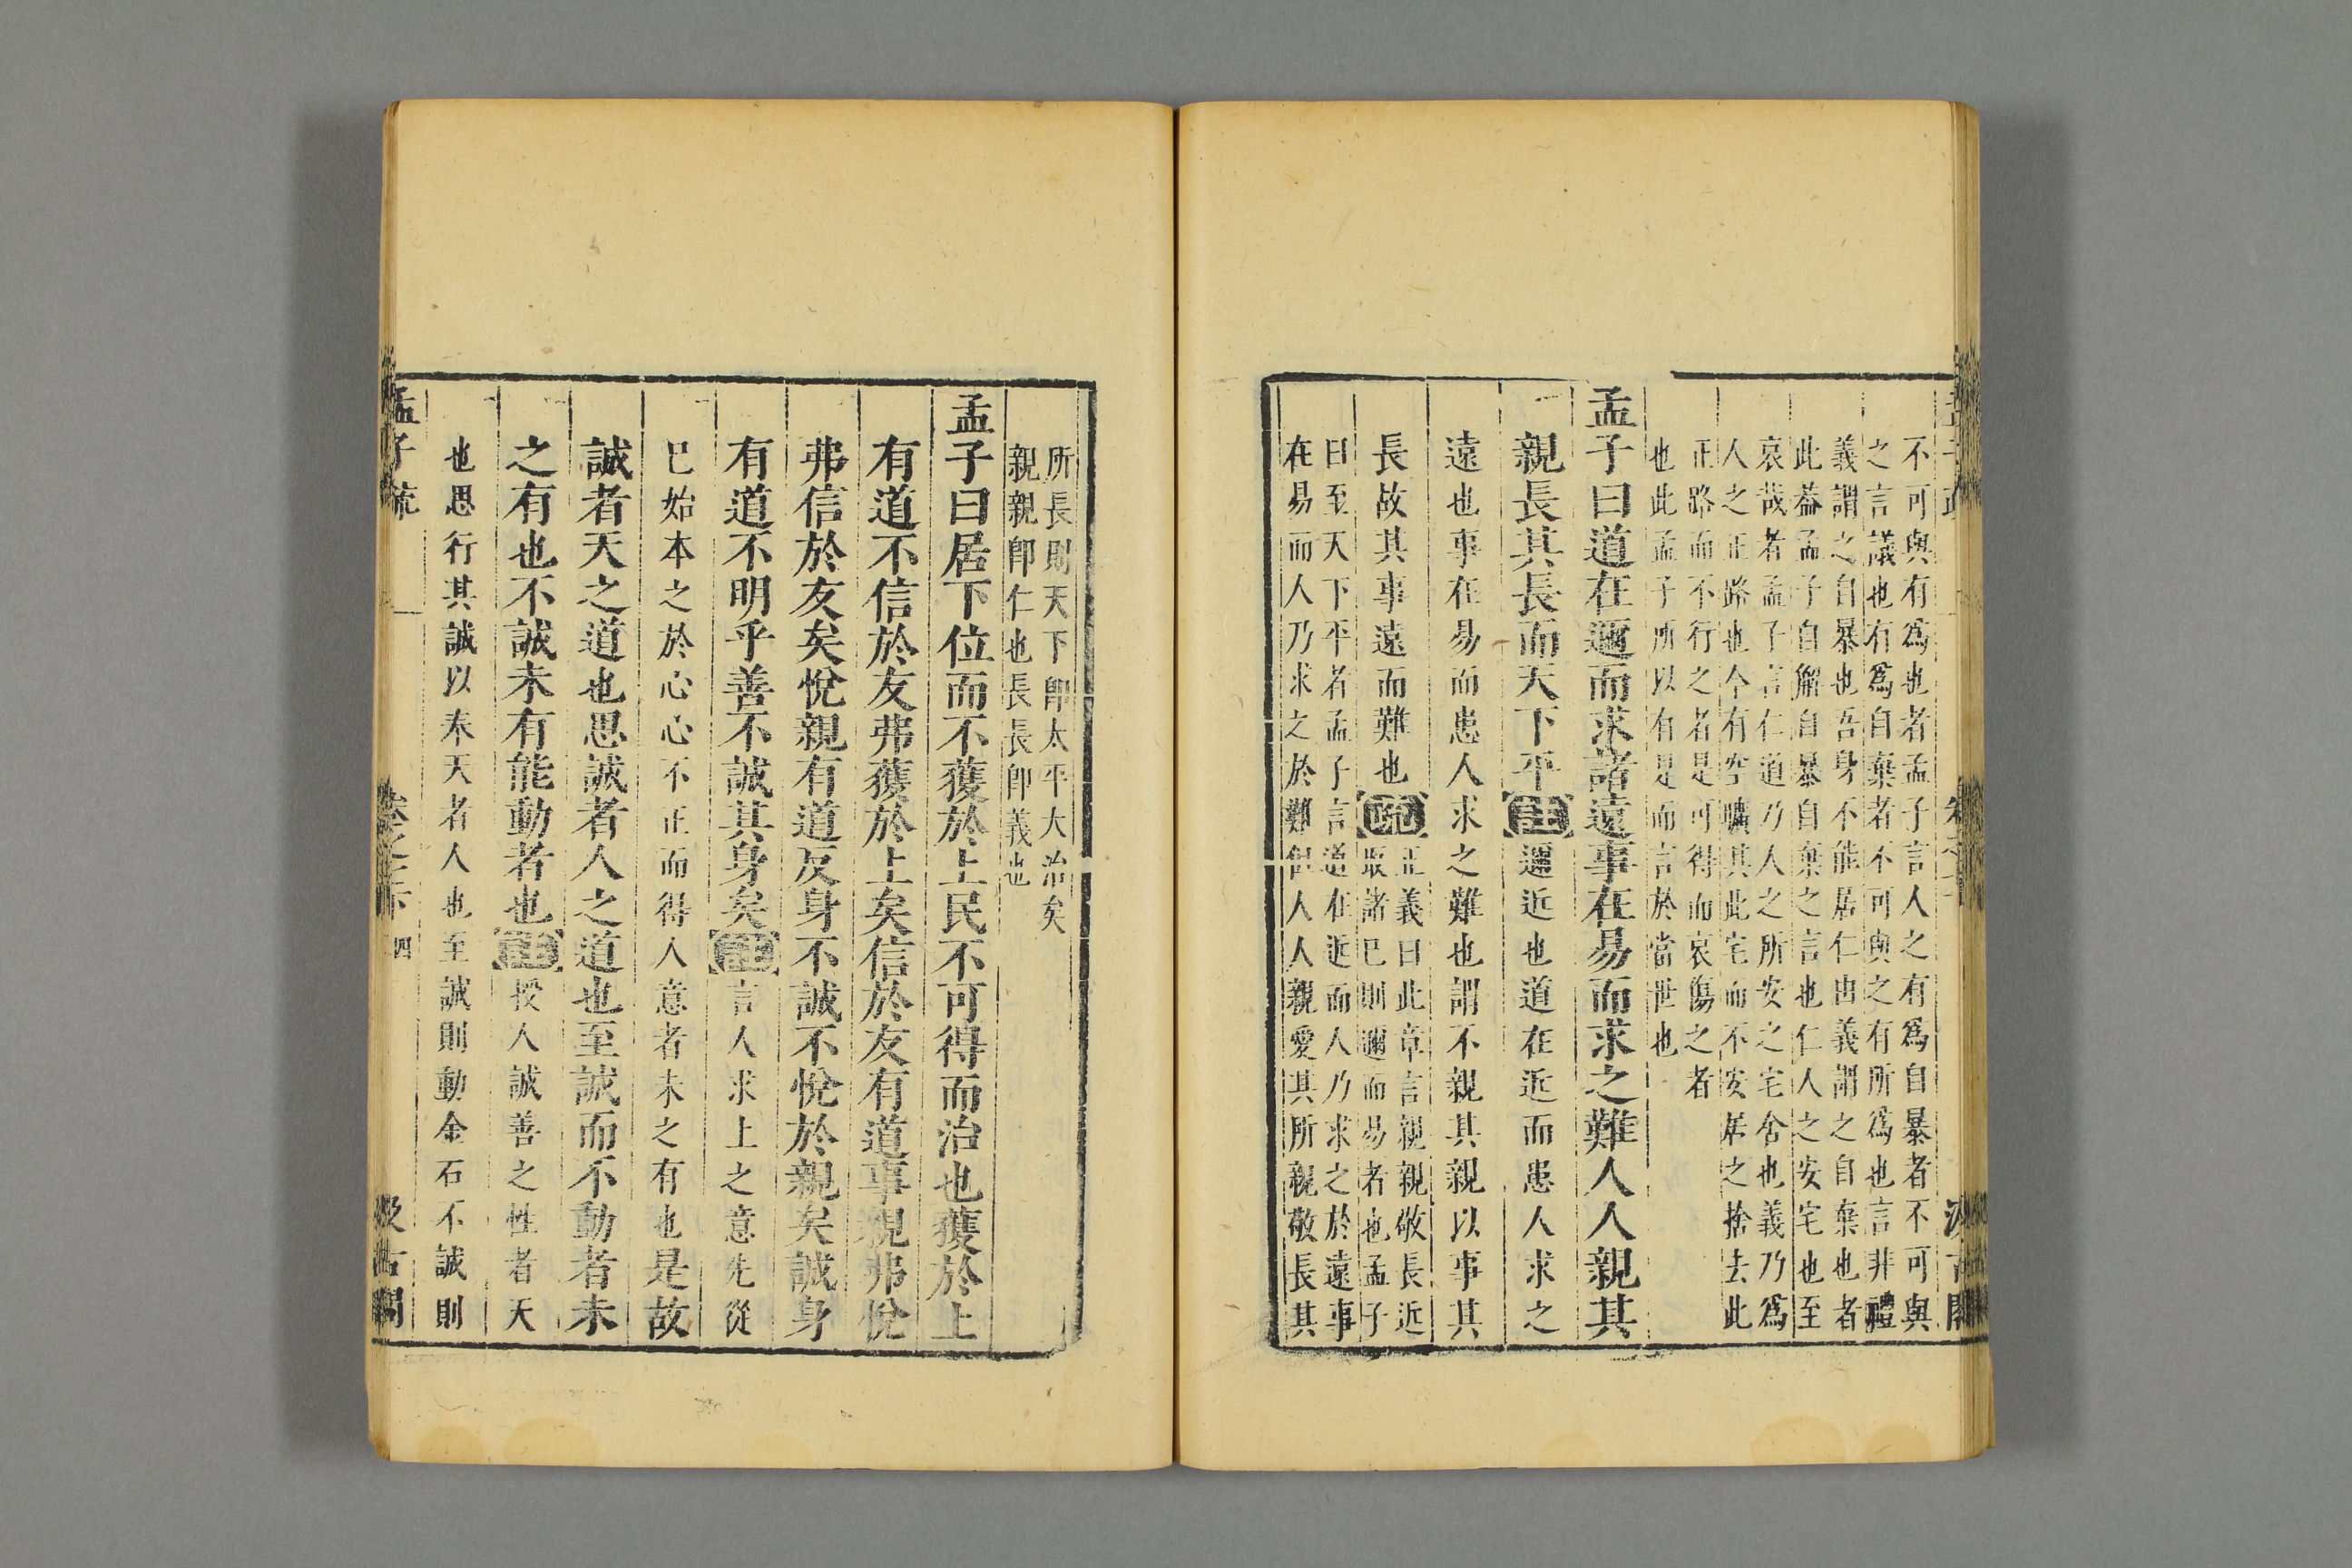 不可與有爲也者孟子言人之有爲自暴者不可與
之言議也有爲自棄者不可與之有所爲也言非禮
義謂之自暴也吾身不能居仁由義謂之自棄也者
此葢孟子自解自暴自棄之言也仁人之安宅也至
哀哉者孟子言仁道乃人之所安之宅舍也義乃爲
人之正路也今有空曠其此宅而不安居之捨去此
正路而不行之者是可得而哀傷之者
也此孟子所以有是而言於當世也
孟子曰道在邇而求諸遠事在易而求之難人人親其
親長其長而天下平註邇近也道在近而患人求之
遠也事在易而患人求之難也謂不親其親以事其
長故其事遠而難也疏正義曰此章言親親敬長近
取諸已則邇而易者也孟子
曰至天下平者孟子言道在近而人乃求之於遠事
在易而人乃求之於難但人人親愛其所親敬長其
所長則天下卽太平大治矣
親親卽仁也長長卽義也
孟子曰居下位而不獲於上民不可得而治也獲於上
有道不信於友弗獲於上矣信於友有道事親弗悅
弗信於友矣悅親有道反身不誠不悅於親矣誠身
有道不明乎善不誠其身矣註言人求上之意先從
已始本之於心心不正而得人意者未之有也是故
誠者天之道也思誠者人之道也至誠而不動者未
之有也不誠未有能動者也註授人誠善之性者天
也思行其誠以奉天者人也至誠則動金石不誠則
孟子疏 卷七下 四 汲古閣